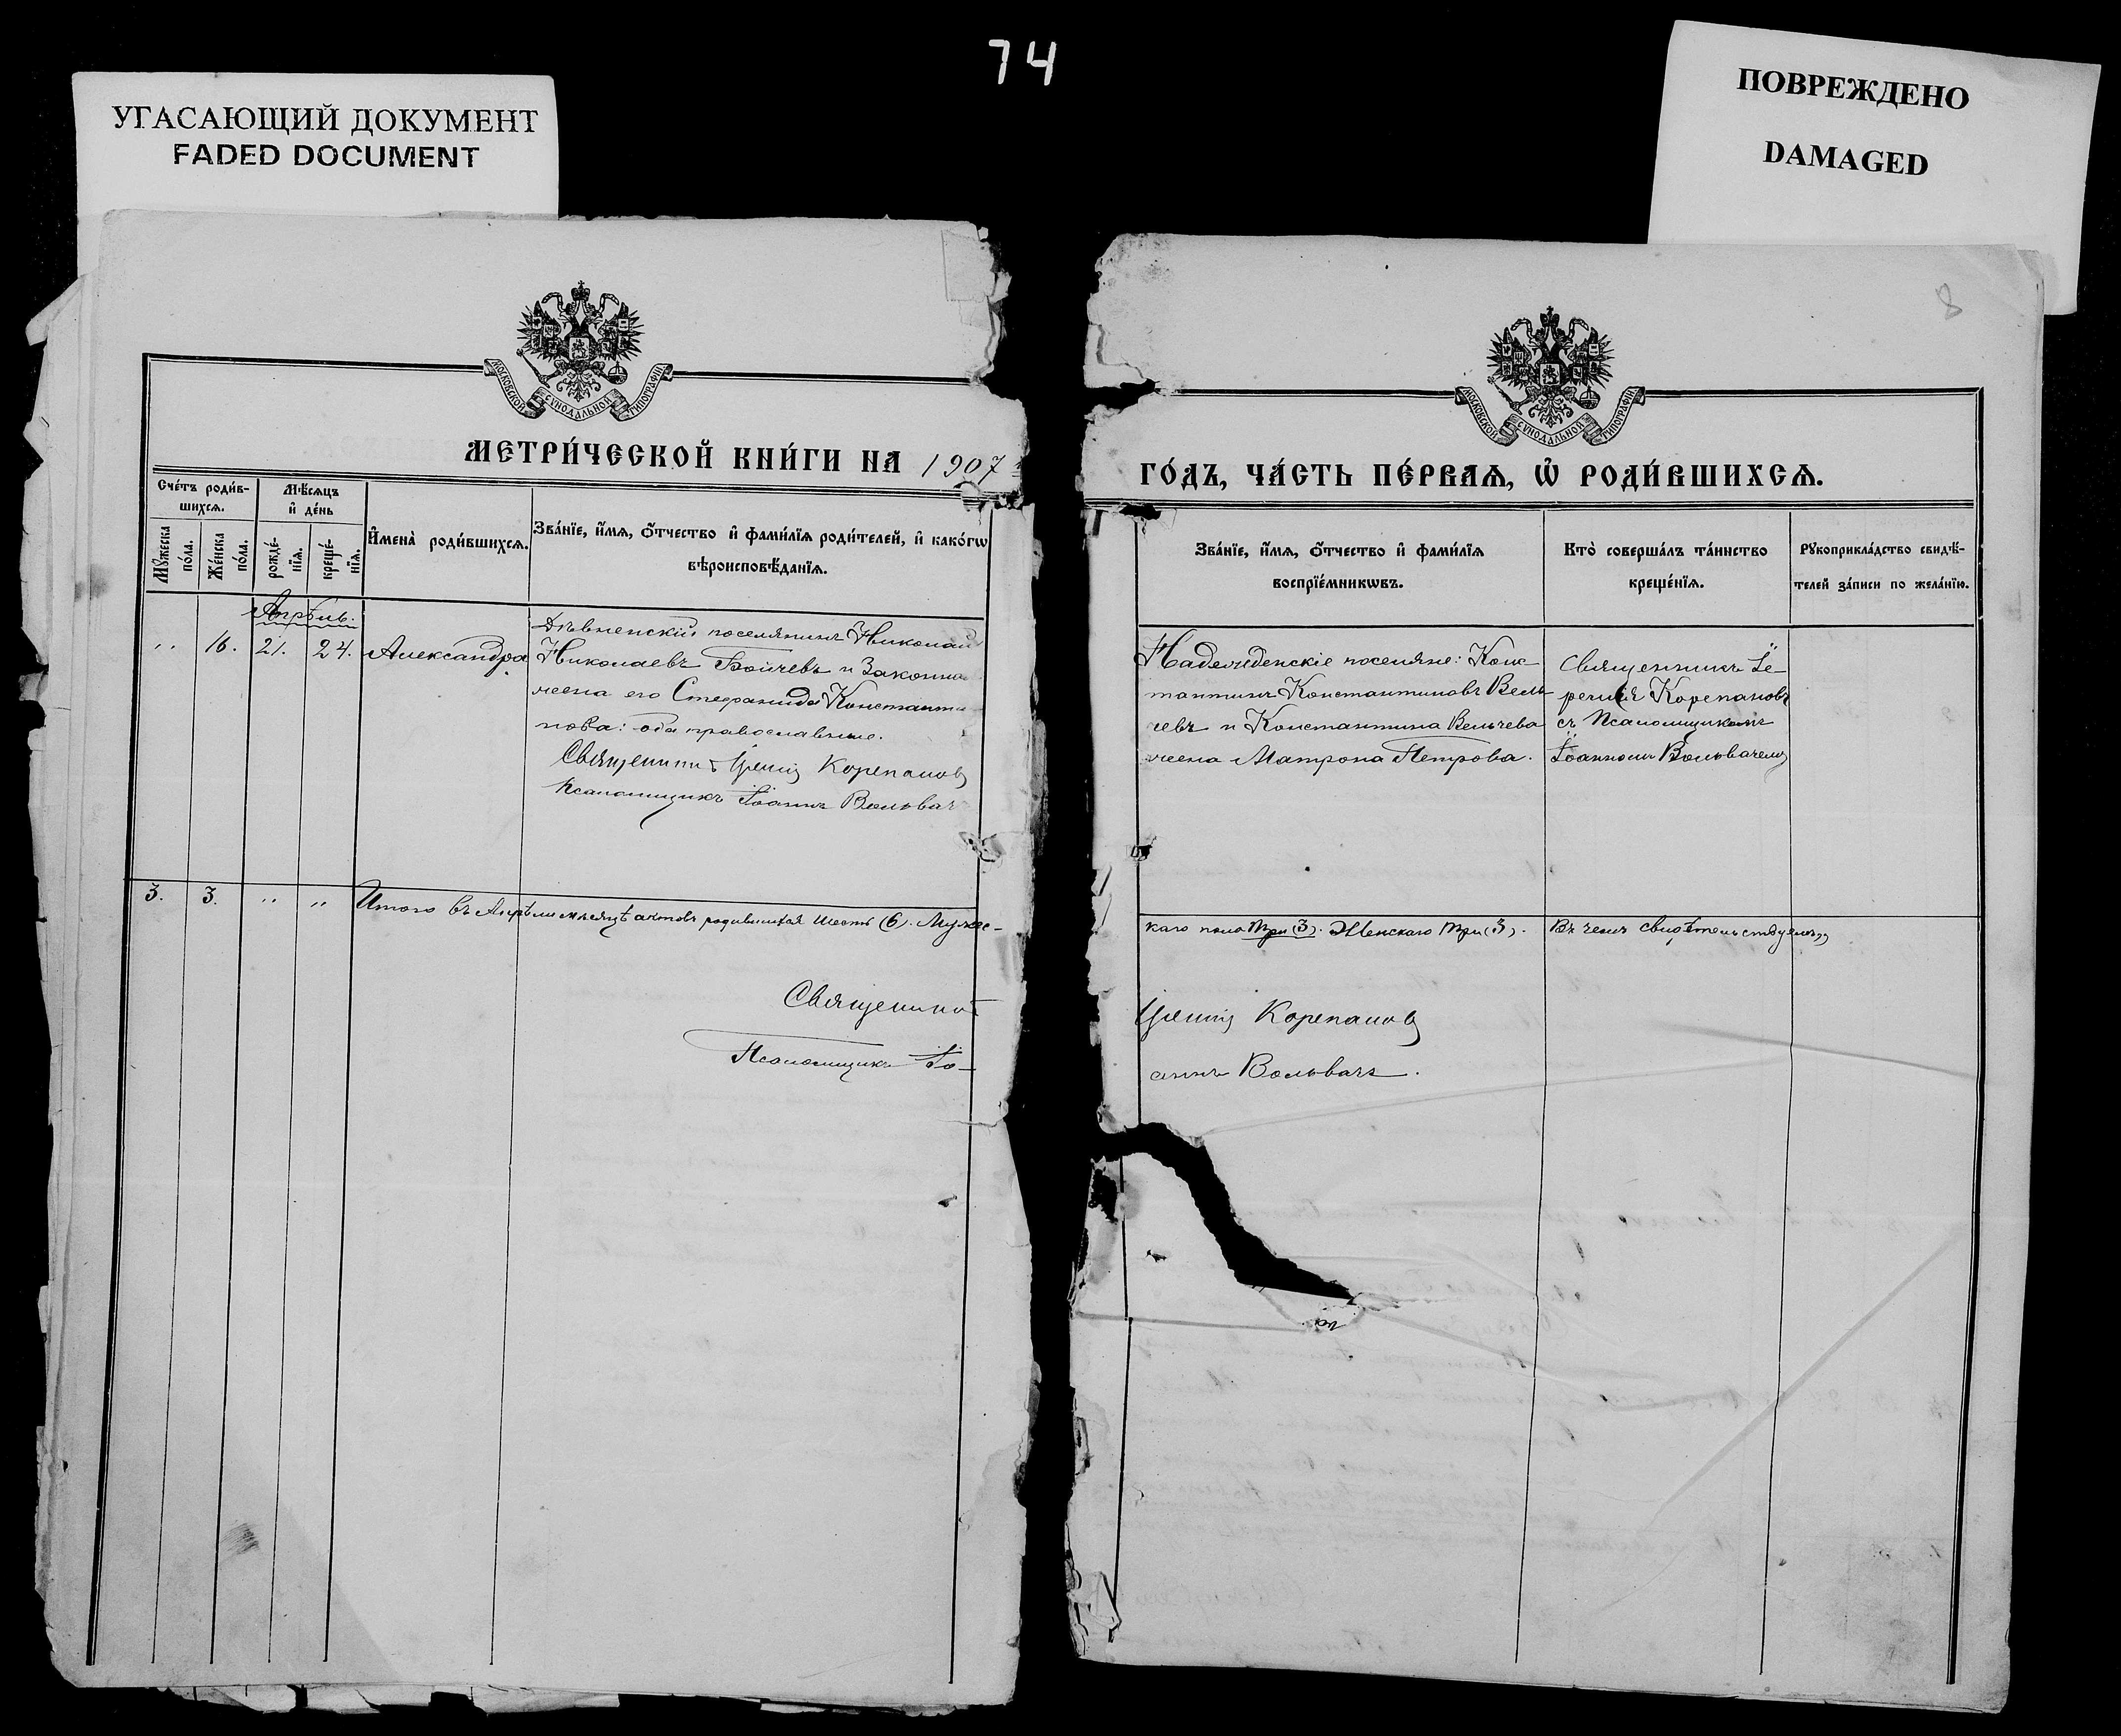 74
УГАСАЮЩИЙ ДОКУМЕНТ
FADED DOCUMENT
ПОВРЕЖДЕНО
DAMAGED
8
МОСКОВСКОЙ СѴНОДАЛЬНОЙ ТИПОГРАФІИ
МОСКОВСКОЙ СѴНОДАЛЬНОЙ ТИПОГРАФІИ
МЕТРИ́ЧЕСКОЙ КНИ́ГИ НА 1907
ГО́ДЪ, ЧА́СТЬ ПЕ́РВАѦ, Ѽ РОДИ́ВШИХСѦ.
Сче́тъ роди́в-
шихсѧ.
Мꙋ́жеска
по́ла.
Же́нска
по́ла.
Мѣ́сѧцъ
и҆ де́нь
рожде́-
нїѧ.
креще́-
нїѧ.
И҆мена̀ роди́вшихсѧ.
Зва́нїе, и҆́мѧ, ѻ҆́тчество и҆ фами́лїѧ роди́телей, и҆ како́гѡ
вѣроисповѣ́данїѧ.
Зва́нїе, и҆́мѧ, ѻ҆́тчество и҆ фами́лїѧ
воспрїе́мникѡвъ.
Кто̀ соверша́лъ та́инство
креще́нїѧ.
Рꙋкоприкла́дство свидѣ́-
телей за́писи по жела́нїю.
Апрѣль.
" 16. 21. 24. Александра
поселянинъ Николай
Николаевъ Бойчевъ и законна
жена его Стефанида Константи
нова: оба православные.
Священникъ Ѵреній Корепановъ
Псаломщикъ Іоаннъ Вольвачъ
поселяне: Конс
тантинъ Константиновъ Вель
чевъ и Константина Вельчева
жена Матрона Петрова.
Священникъ
Корепановъ
съ Псаломщикомъ
Іоанномъ Вольвачемъ
3. 3. " " Итого въ Апрѣли мѣсяцѣ актовъ родившихся шесть (6). Мужес-
каго пола три (3). Женскаго три (3). Въ чемъ свидѣтельствуемъ,,
Священникъ
Корепановъ
Псаломщикъ Іо-
аннъ Вольвачъ.